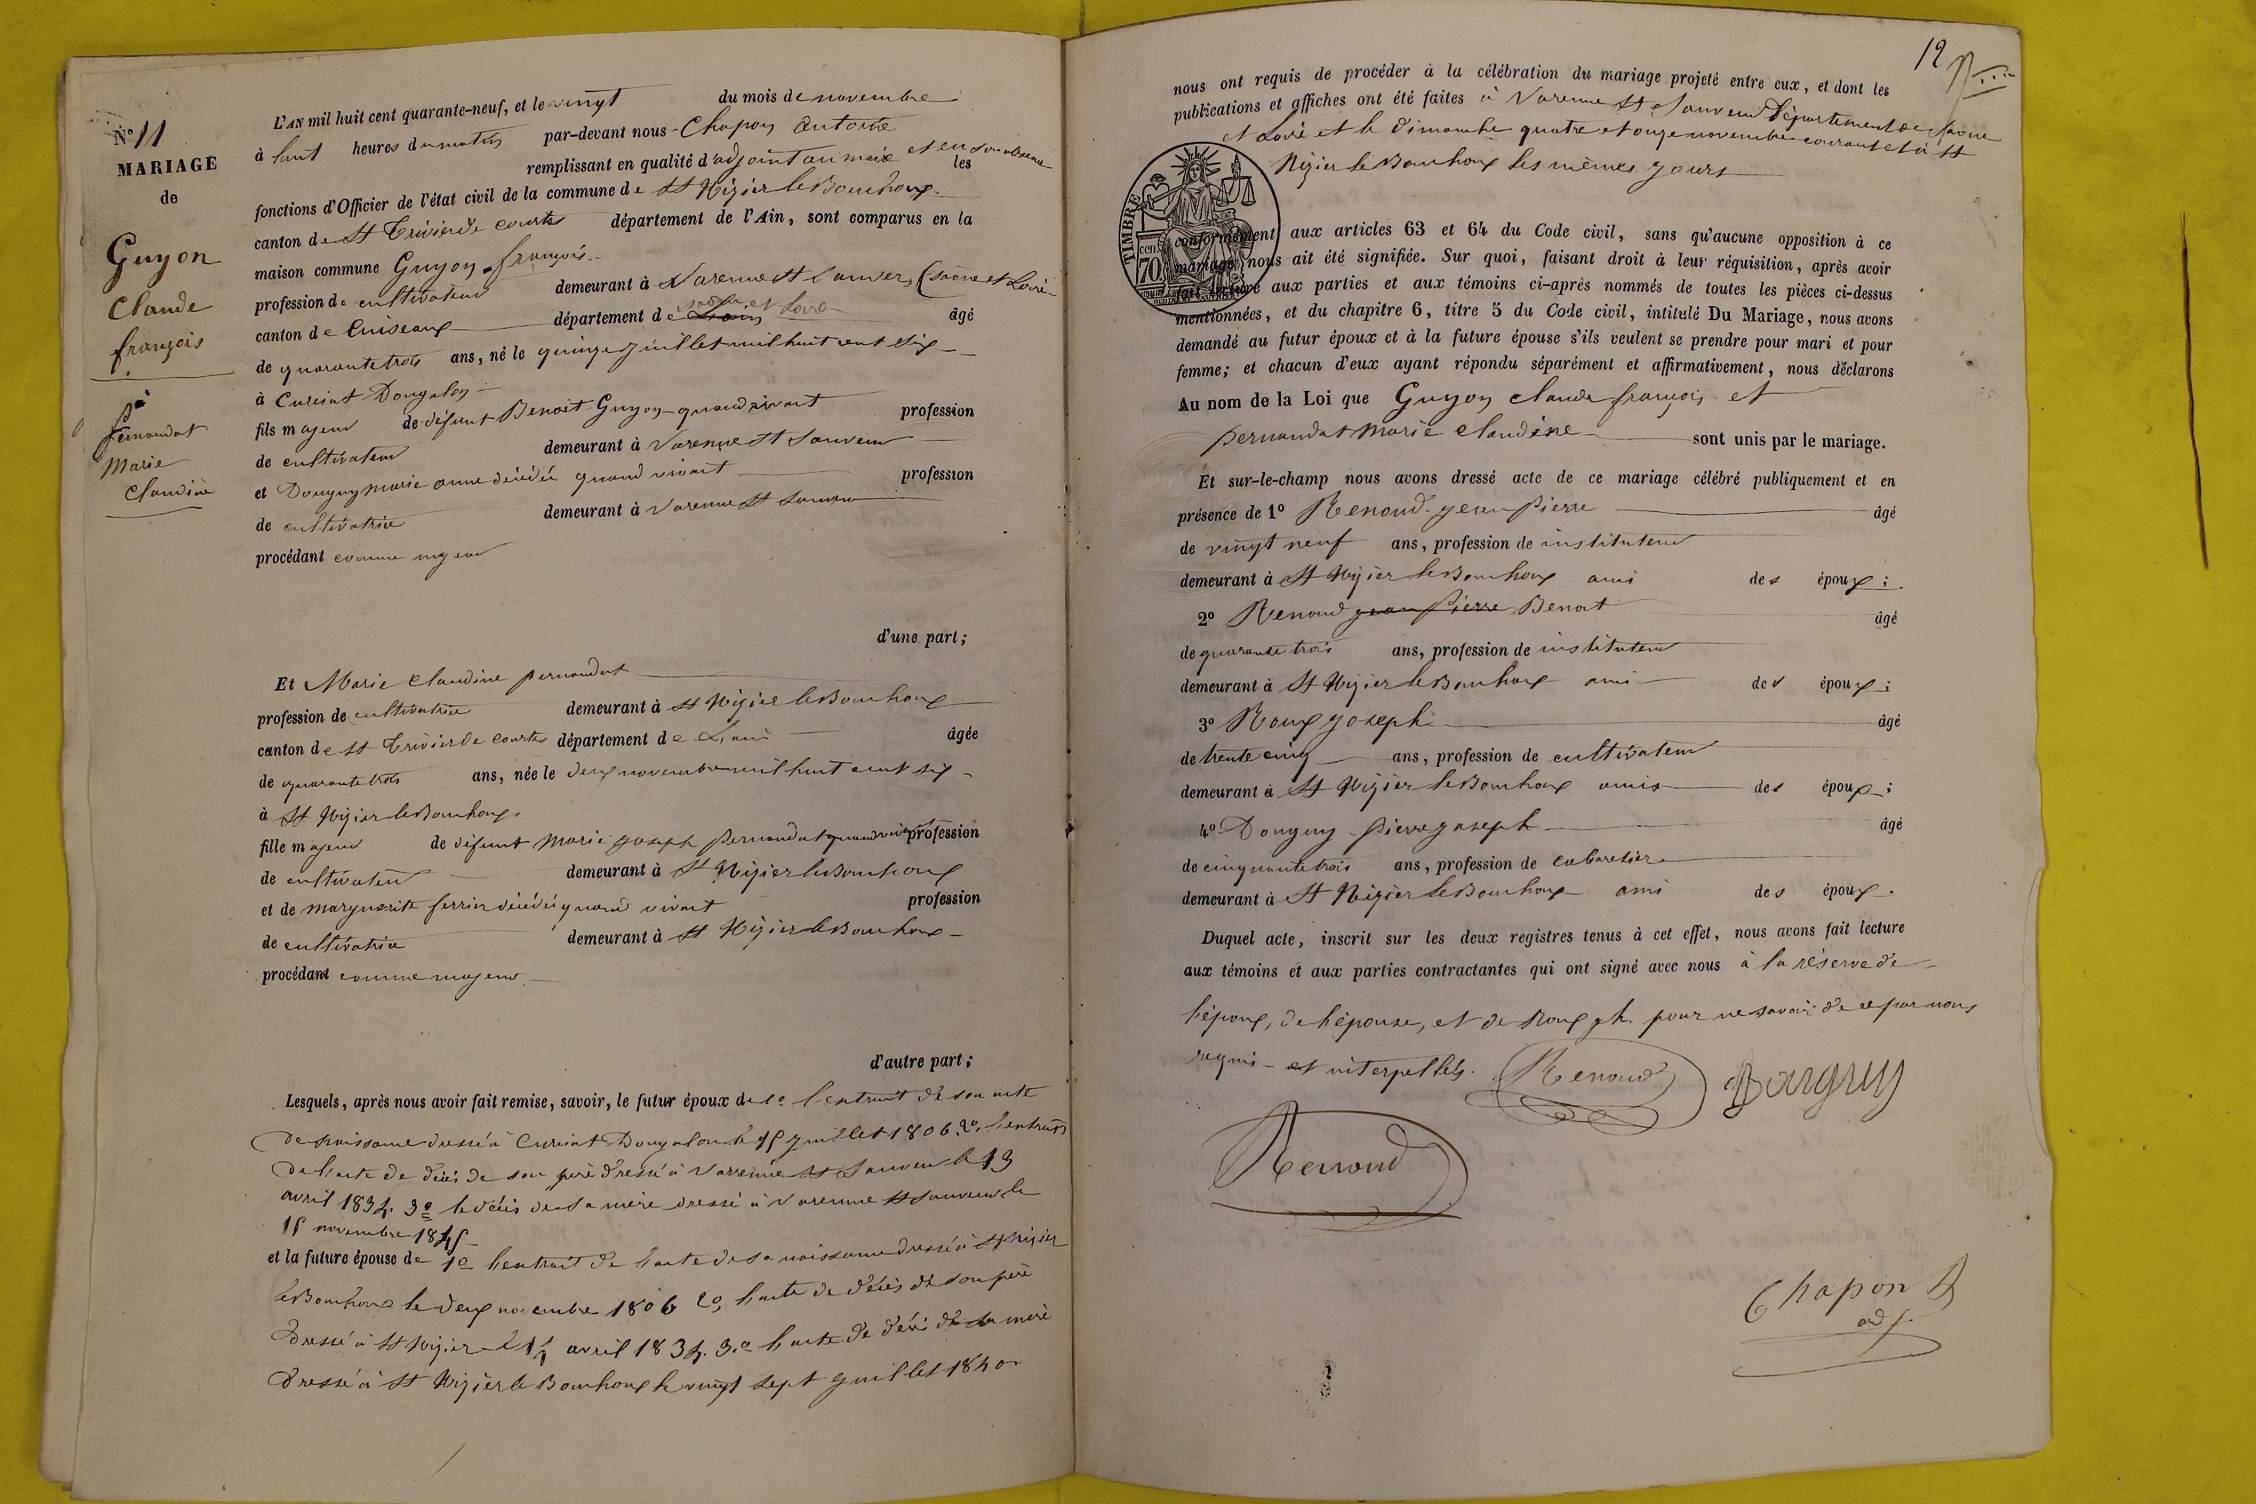 N° 11
MARIAGE
de
Guyon
Claude
françois
&
Pernandat
Marie
Claudine
L'AN mil huit cent quarante-neuf, et le vingt du mois de novembre
à huit heures du matin par-devant nous Chapon Antoine
remplissant en qualité d'adjoint au maire et en son absence les
fonctions d'Officier de l'état civil de la commune de St Nizier le Bouchoux
canton de St Trivier de Courtes département de l'Ain, sont comparus en la
maison commune Guyon françois
profession de cultivateur demeurant à Varenne St Sauver, (Saône et Loire
canton de Cuiseaux département de Saône et Loire âgé
de quarante trois ans, né le quinze juillet mil huit cent six
à Curciat Dongalon
fils majeur de défunt Benoit Guyon quand vivait profession
de cultivateur demeurant à Varenne St Sauveur
et Douguy marie anne décédée quand vivait profession
de cultivatrice demeurant à Varenne St Sauveur
procédant comme majeur
d'une part;
Et Marie Claudine pernandat
profession de cultivatrice demeurant à St Nizier le Bouchoux
canton de St Trivier de Courtes département de L'ain âgée
de quarante trois ans, née le deux novembre mil huit cent six
à St Nizier le Bouchoux
fille majeur de défunt Marie joseph pernandat quand vivait profession
de cultivateur demeurant à St Nizier le Bouchoux
et de marguerite ferrier décédée quand vivait profession
de cultivatrice demeurant à St Nizier le Bouchoux
procédant comme majeur
d'autre part;
Lesquels, après nous avoir fait remise, savoir, le futur époux de 1° l'extrait de son acte
de naissance dressé à Curciat Dongalon le 15 juillet 1806. 2°, l'extrait
de l'acte de décés de son père dressé à Varenne St Sauveur le 13
avril 1834. 3° le décés de sa mère dressé à Varenne St Sauveur le
15 novembre 1845
et la future épouse de 1° l'extrait de l'acte de sa naissance dressé à St Nizier
le Bouchoux le deux novembre 1806 2°, l'acte de décès de son père
dressé à St Nizier le 14 avril 1834. 3° l'acte de décé de sa mère
dressé à St Nizier le Bouchoux le vingt sept juillet 1840
12
nous ont requis de procéder à la célébration du mariage projeté entre eux, et dont les
publications et affiches ont été faites à Varenne St Sauveur Département de Saône
et Loire et le dimanche quatre et onze novembre courant et à St
Nizier le Bouchoux les mêmes jours
TIMBRE
cent
70
conformément aux articles 63 et 64 du Code civil, sans qu'aucune opposition à ce
mariage nous ait été signifiée. Sur quoi, faisant droit à leur réquisition, après avoir
fait lecture aux parties et aux témoins ci-après nommés de toutes les pièces ci-dessus
mentionnées, et du chapitre 6, titre 5 du Code civil, intitulé Du Mariage, nous avons
demandé au futur époux et à la future épouse s'ils veulent se prendre pour mari et pour
femme; et chacun d'eux ayant répondu séparément et affirmativement, nous déclarons
Au nom de la Loi que Guyon claude françois et
pernandat Marie claudine sont unis par le mariage.
Et sur-le-champ nous avons dressé acte de ce mariage célébré publiquement et en
présence de 1° Renoud jean Pierre âgé
de vingt neuf ans, profession de instituteur
demeurant à St Nizier le Bouchoux ami des époux;
2° Renoud jean Pierre Benoit âgé
de quarante trois ans, profession de instituteur
demeurant à St Nizier le Bouchoux ami des époux;
3° Roux joseph âgé
de trente cinq ans, profession de cultivateur
demeurant à St Nizier le Bouchoux amis des époux;
4° Douguy pierre joseph âgé
de cinquante trois ans, profession de cabaretier
demeurant à St Nizier le Bouchoux ami des époux.
Duquel acte, inscrit sur les deux registres tenus à cet effet, nous avons fait lecture
aux témoins et aux parties contractantes qui ont signé avec nous à la réserve de
l'époux, de l'épouse, et de Roux jh. pour ne savoir de ce par nous
requis et interpellés.
Renoud
Renoud
Chapon
adj.